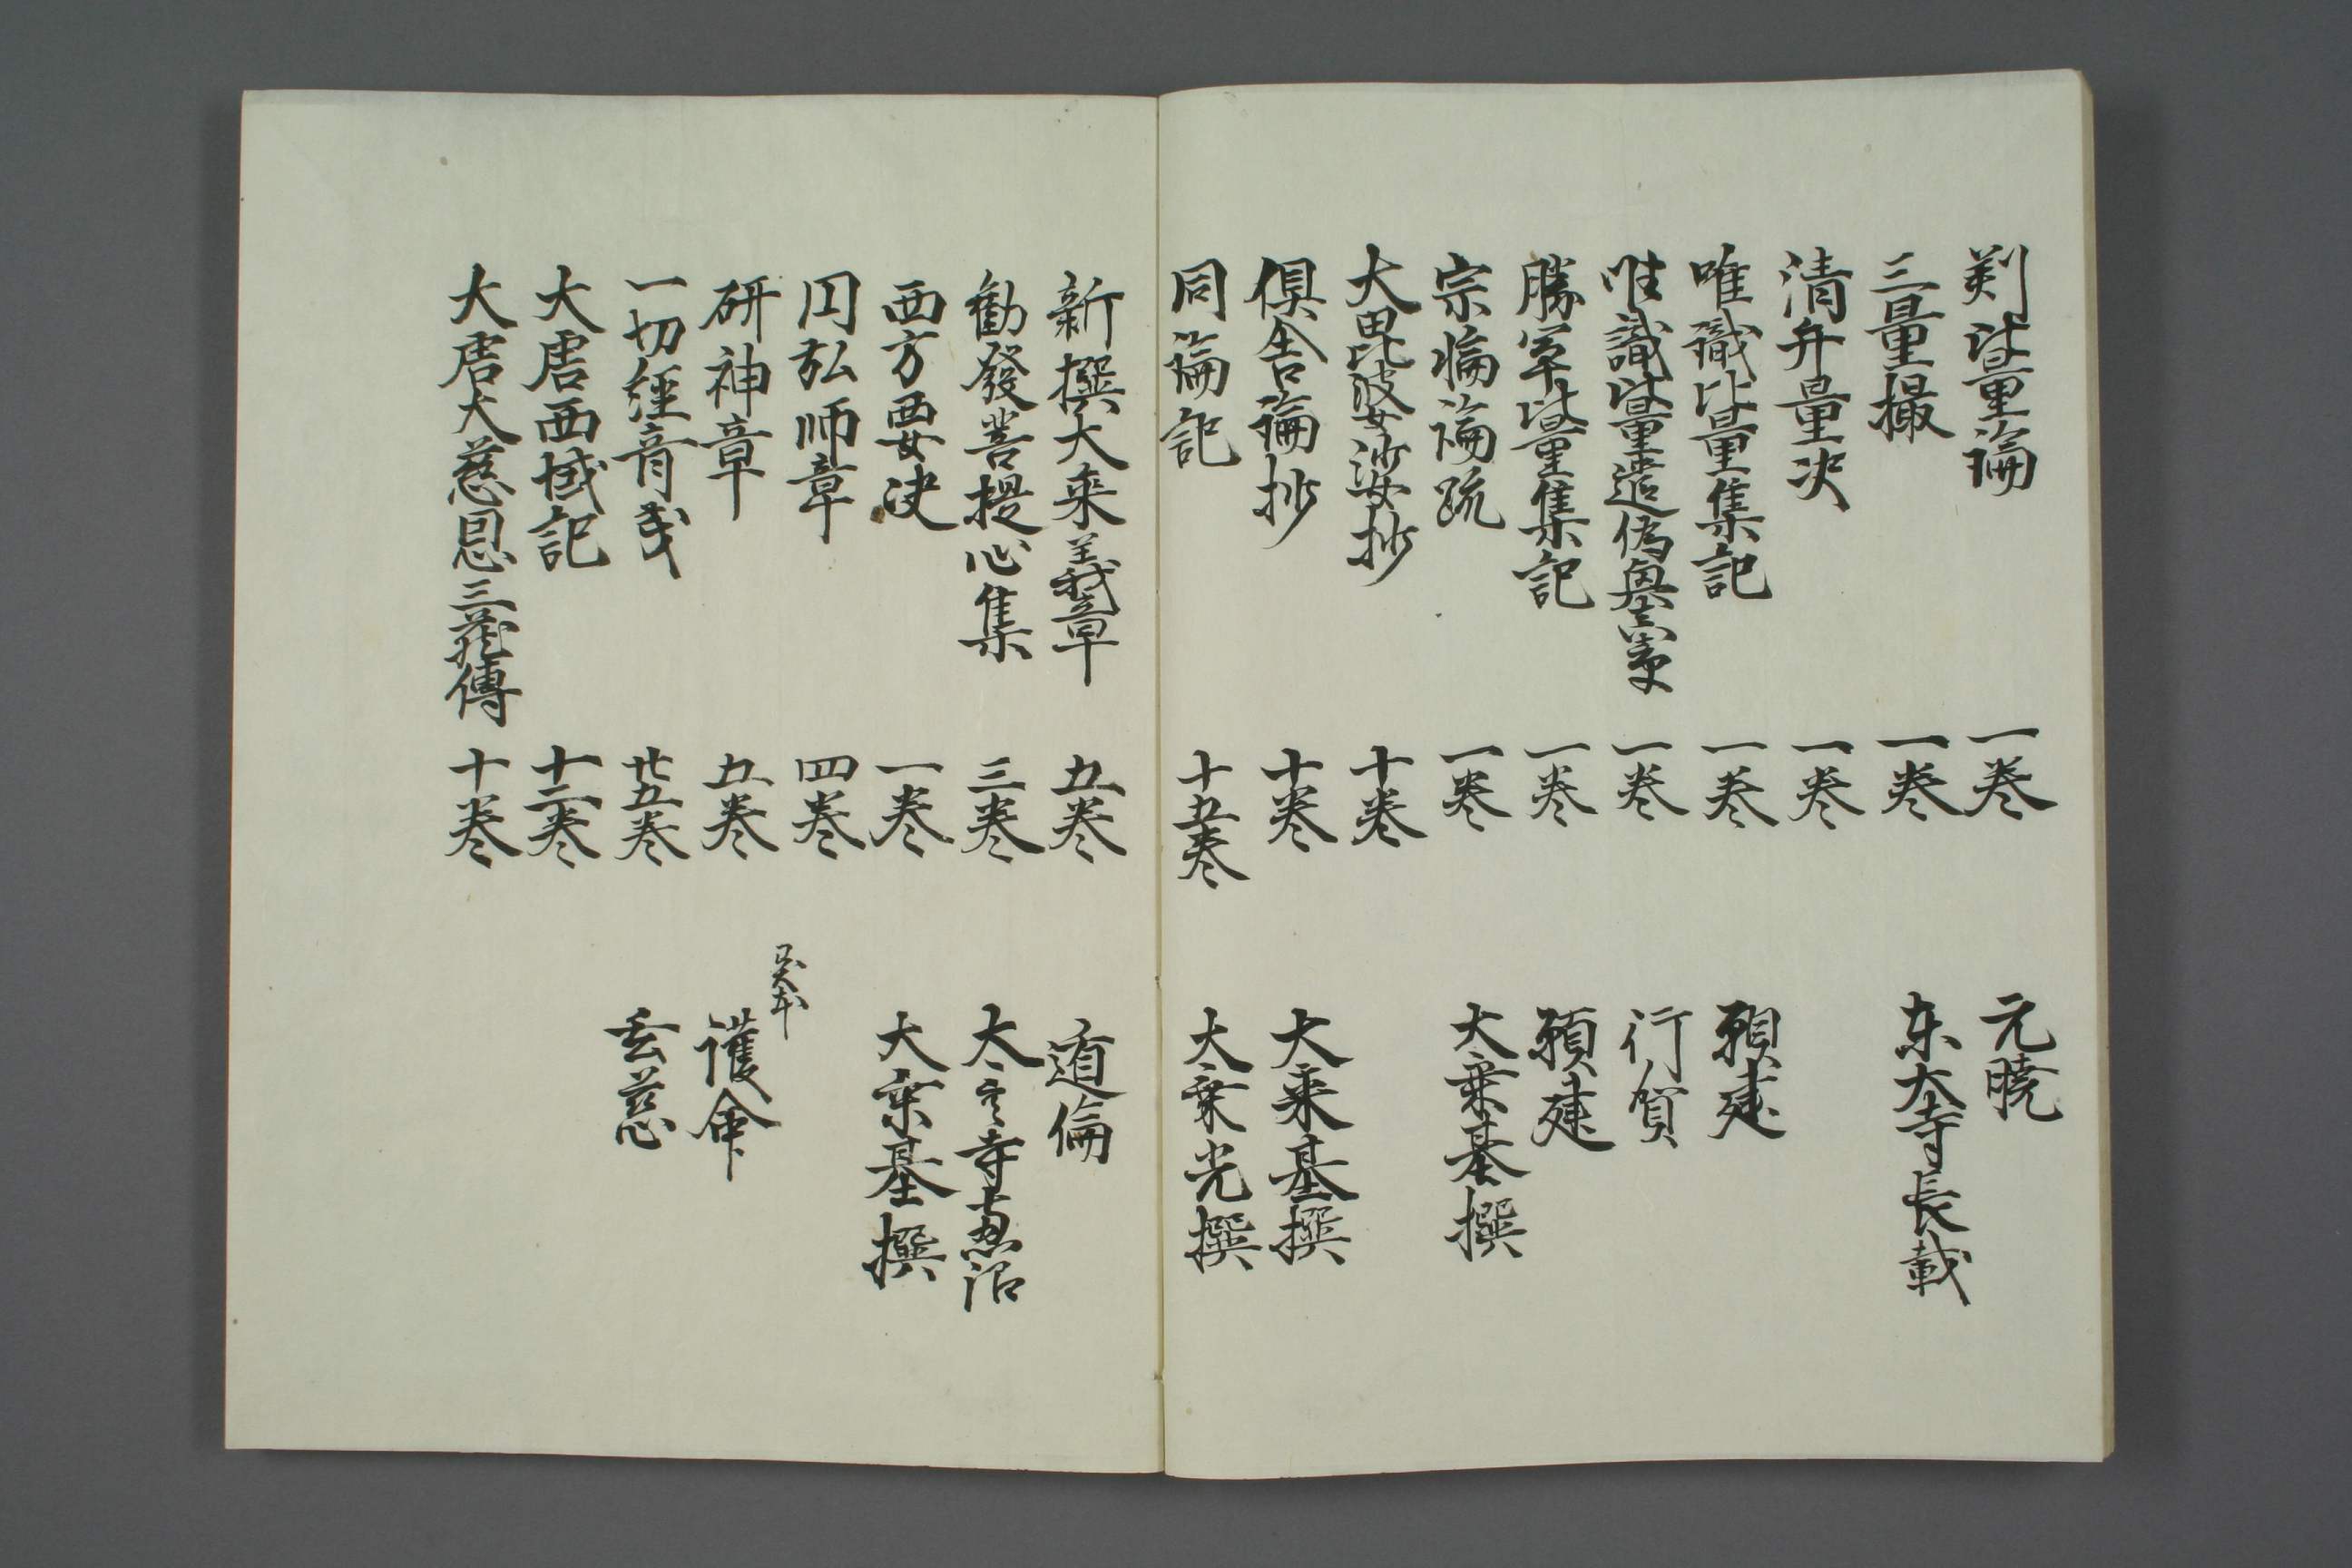 判比量論 一巻 元暁
三量撮 一巻 东大寺長載
清弁量决 一巻
唯識比量集記 一巻 願建
唯識比量造偽 一巻 行賀
勝軍比量集記 一巻 願建
宗輪論疏 一巻 大乗基撰
大毘婆沙抄 十巻
倶舎論抄 十巻 大乗基撰
同論記 十五巻 大乗光撰
新撰大乗義章 五巻 道倫
勧發菩提心集 三巻 大云寺恵沼
西方要决 一巻 大乗基撰
円弘师章 四巻
研神章 五巻 護命
一切经音義 廿五巻 玄慈
大唐西域記 十二巻
大唐大慈恩三蔵傳 十巻